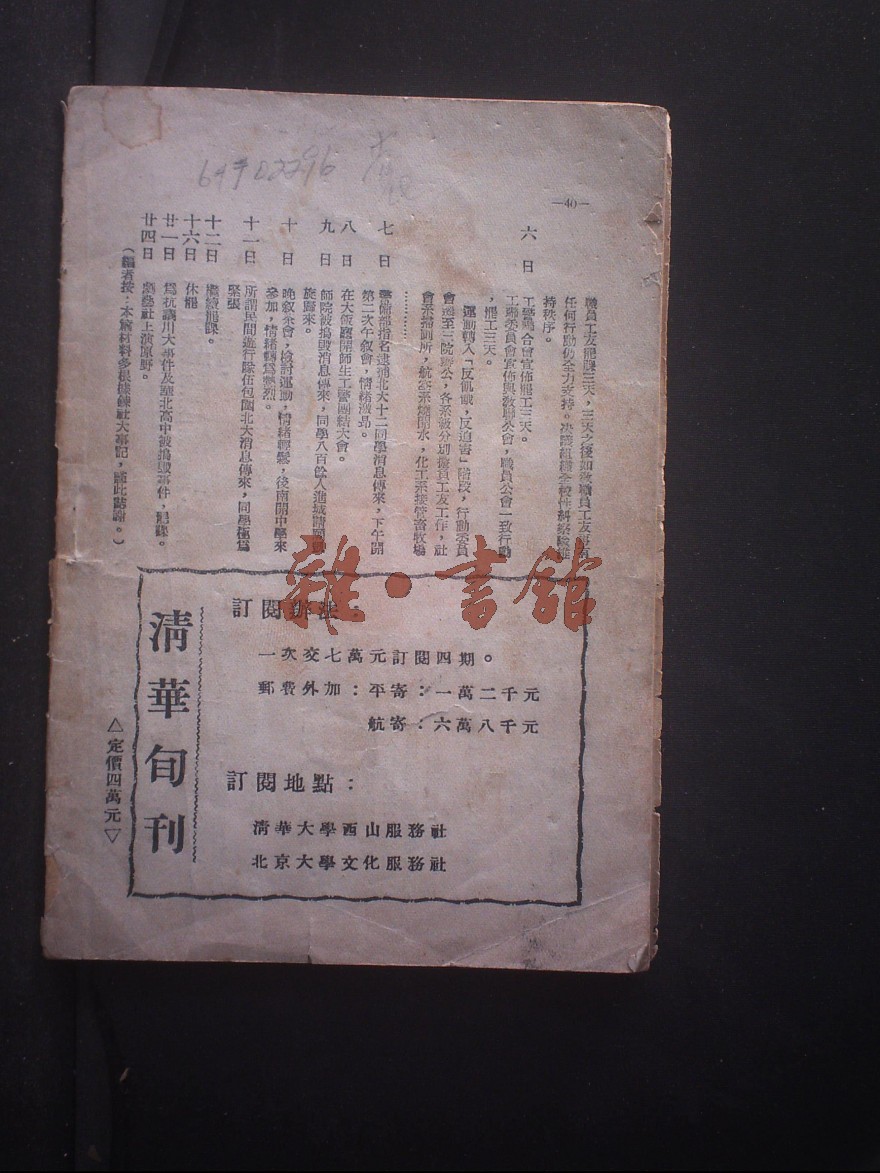 64尹02296
—40—
職員工友罷課三天，三天之後如教職員工友再有
任何行動仍全力支持。決議組織全校性糾察隊維
持秩序。
六日 工警聯合會宣佈罷工三天。
工聯委員會宣佈與教聯公會，職員公會一致行動
，罷工三天。
運動轉入「反飢餓，反迫害」階段，行動委員
會遷至三院辦公，各系級分別擔負工友工作，社
會系掃廁所，航空系燒開水，化工系接管畜牧場
…………
七日 警備部指名逮捕北大十二同學消息傳來，下午開
第二次午敘會，情緒激昂。
八日 在大飯廳開師生工警團結大會。
九日 師院被搗毀消息傳來，同學八百餘人進城請願
旋歸來。
十日 晚敘茶會，檢討運動，情緒輕鬆，後南開中學來
參加，情緒轉為熱烈。
十一日 所謂民間遊行隊伍包圍北大消息傳來，同學極爲
緊張
十二日 繼續罷課。
十六日 休罷
廿一日 爲抗議川大事件及冀北高中被搗毀事件，罷課。
廿四日 劇藝社上演原野。
（編者按：本篇材料多根據練社大事記，謹此誌謝。）
清華旬刊
△定價四萬元▽
訂閱辦法：
一次交七萬元訂閱四期。
郵費外加：平寄：一萬二千元
航寄：六萬八千元
訂閱地點：
清華大學西山服務社
北京大學文化服務社
雜·書館